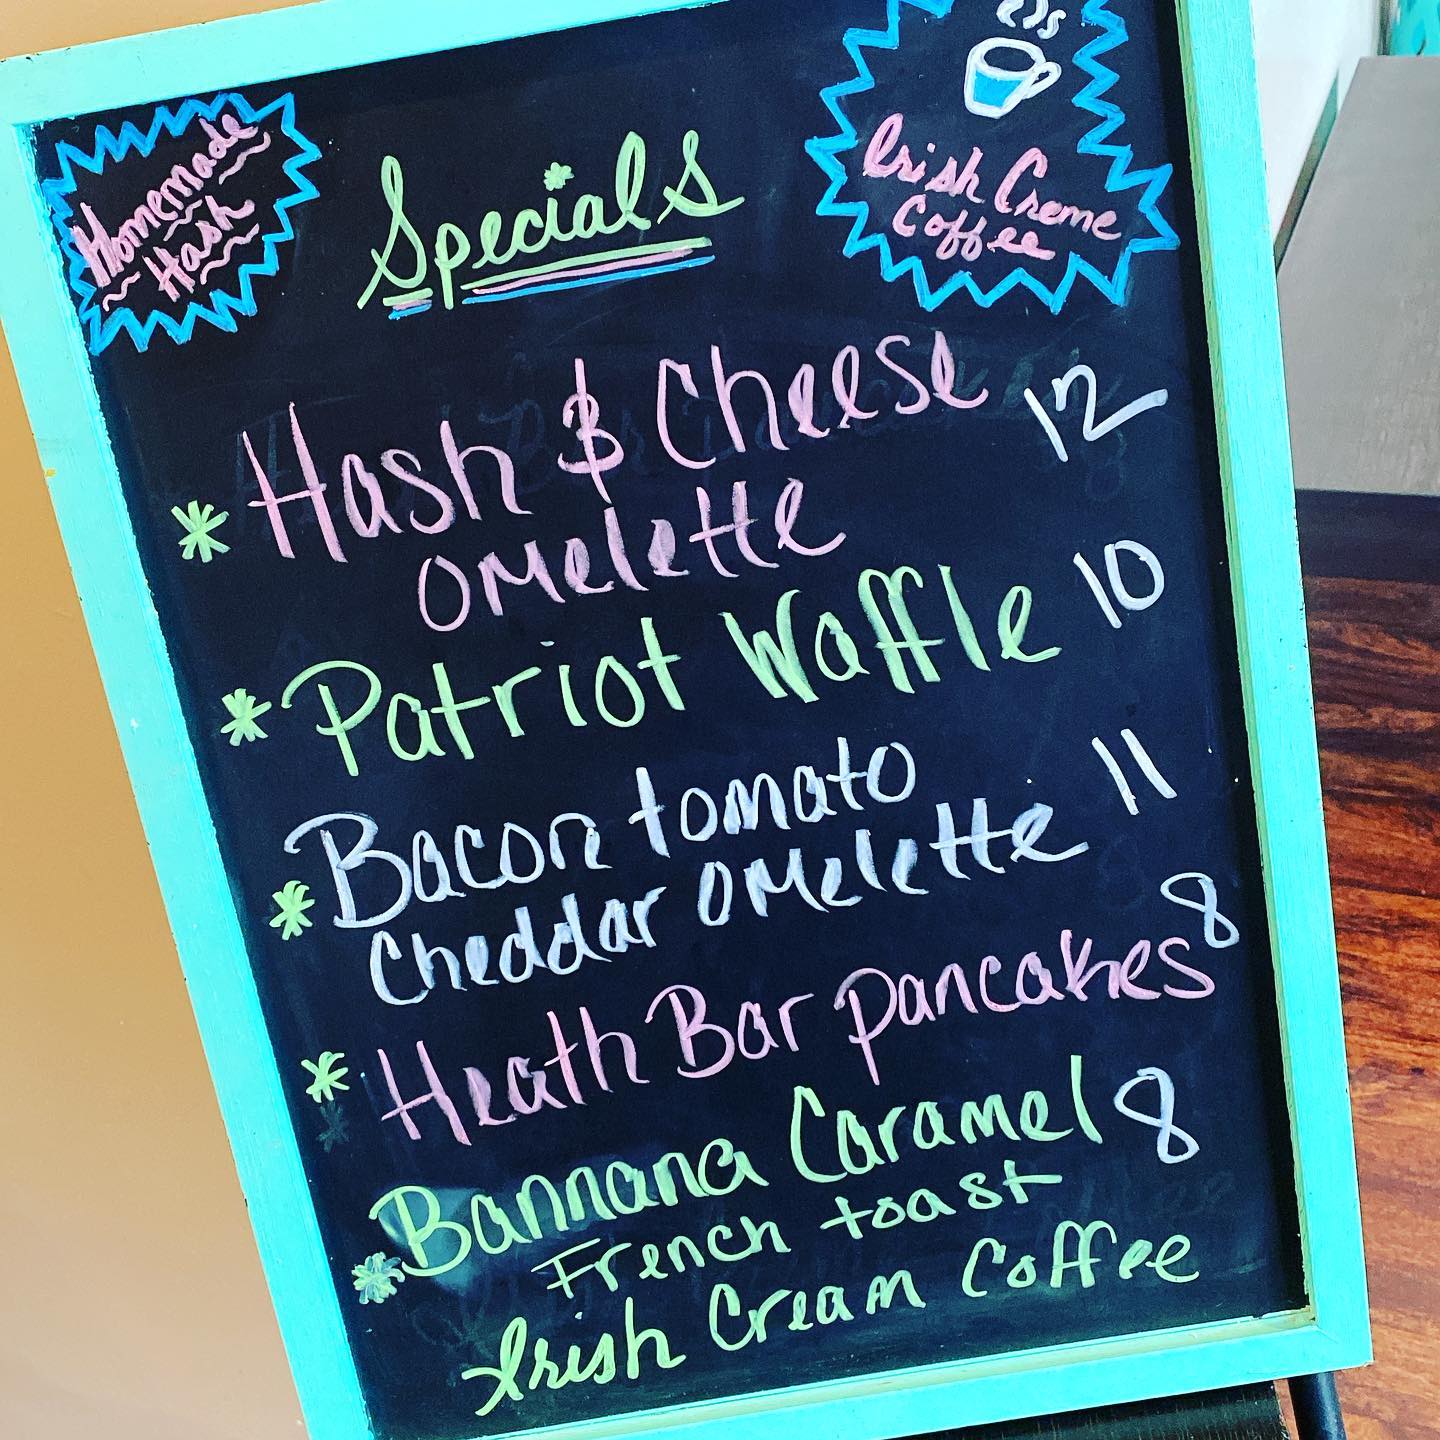 Homemade
Hash
Specials
Irish Creme
Coffee
* Hash & Cheese 12
omelette
* Patriot Waffle 10
* Bacon tomato 11
Cheddar omelette
* Heath Bar pancakes 8
* Bannana Caramel 8
French toast
Irish Cream Coffee